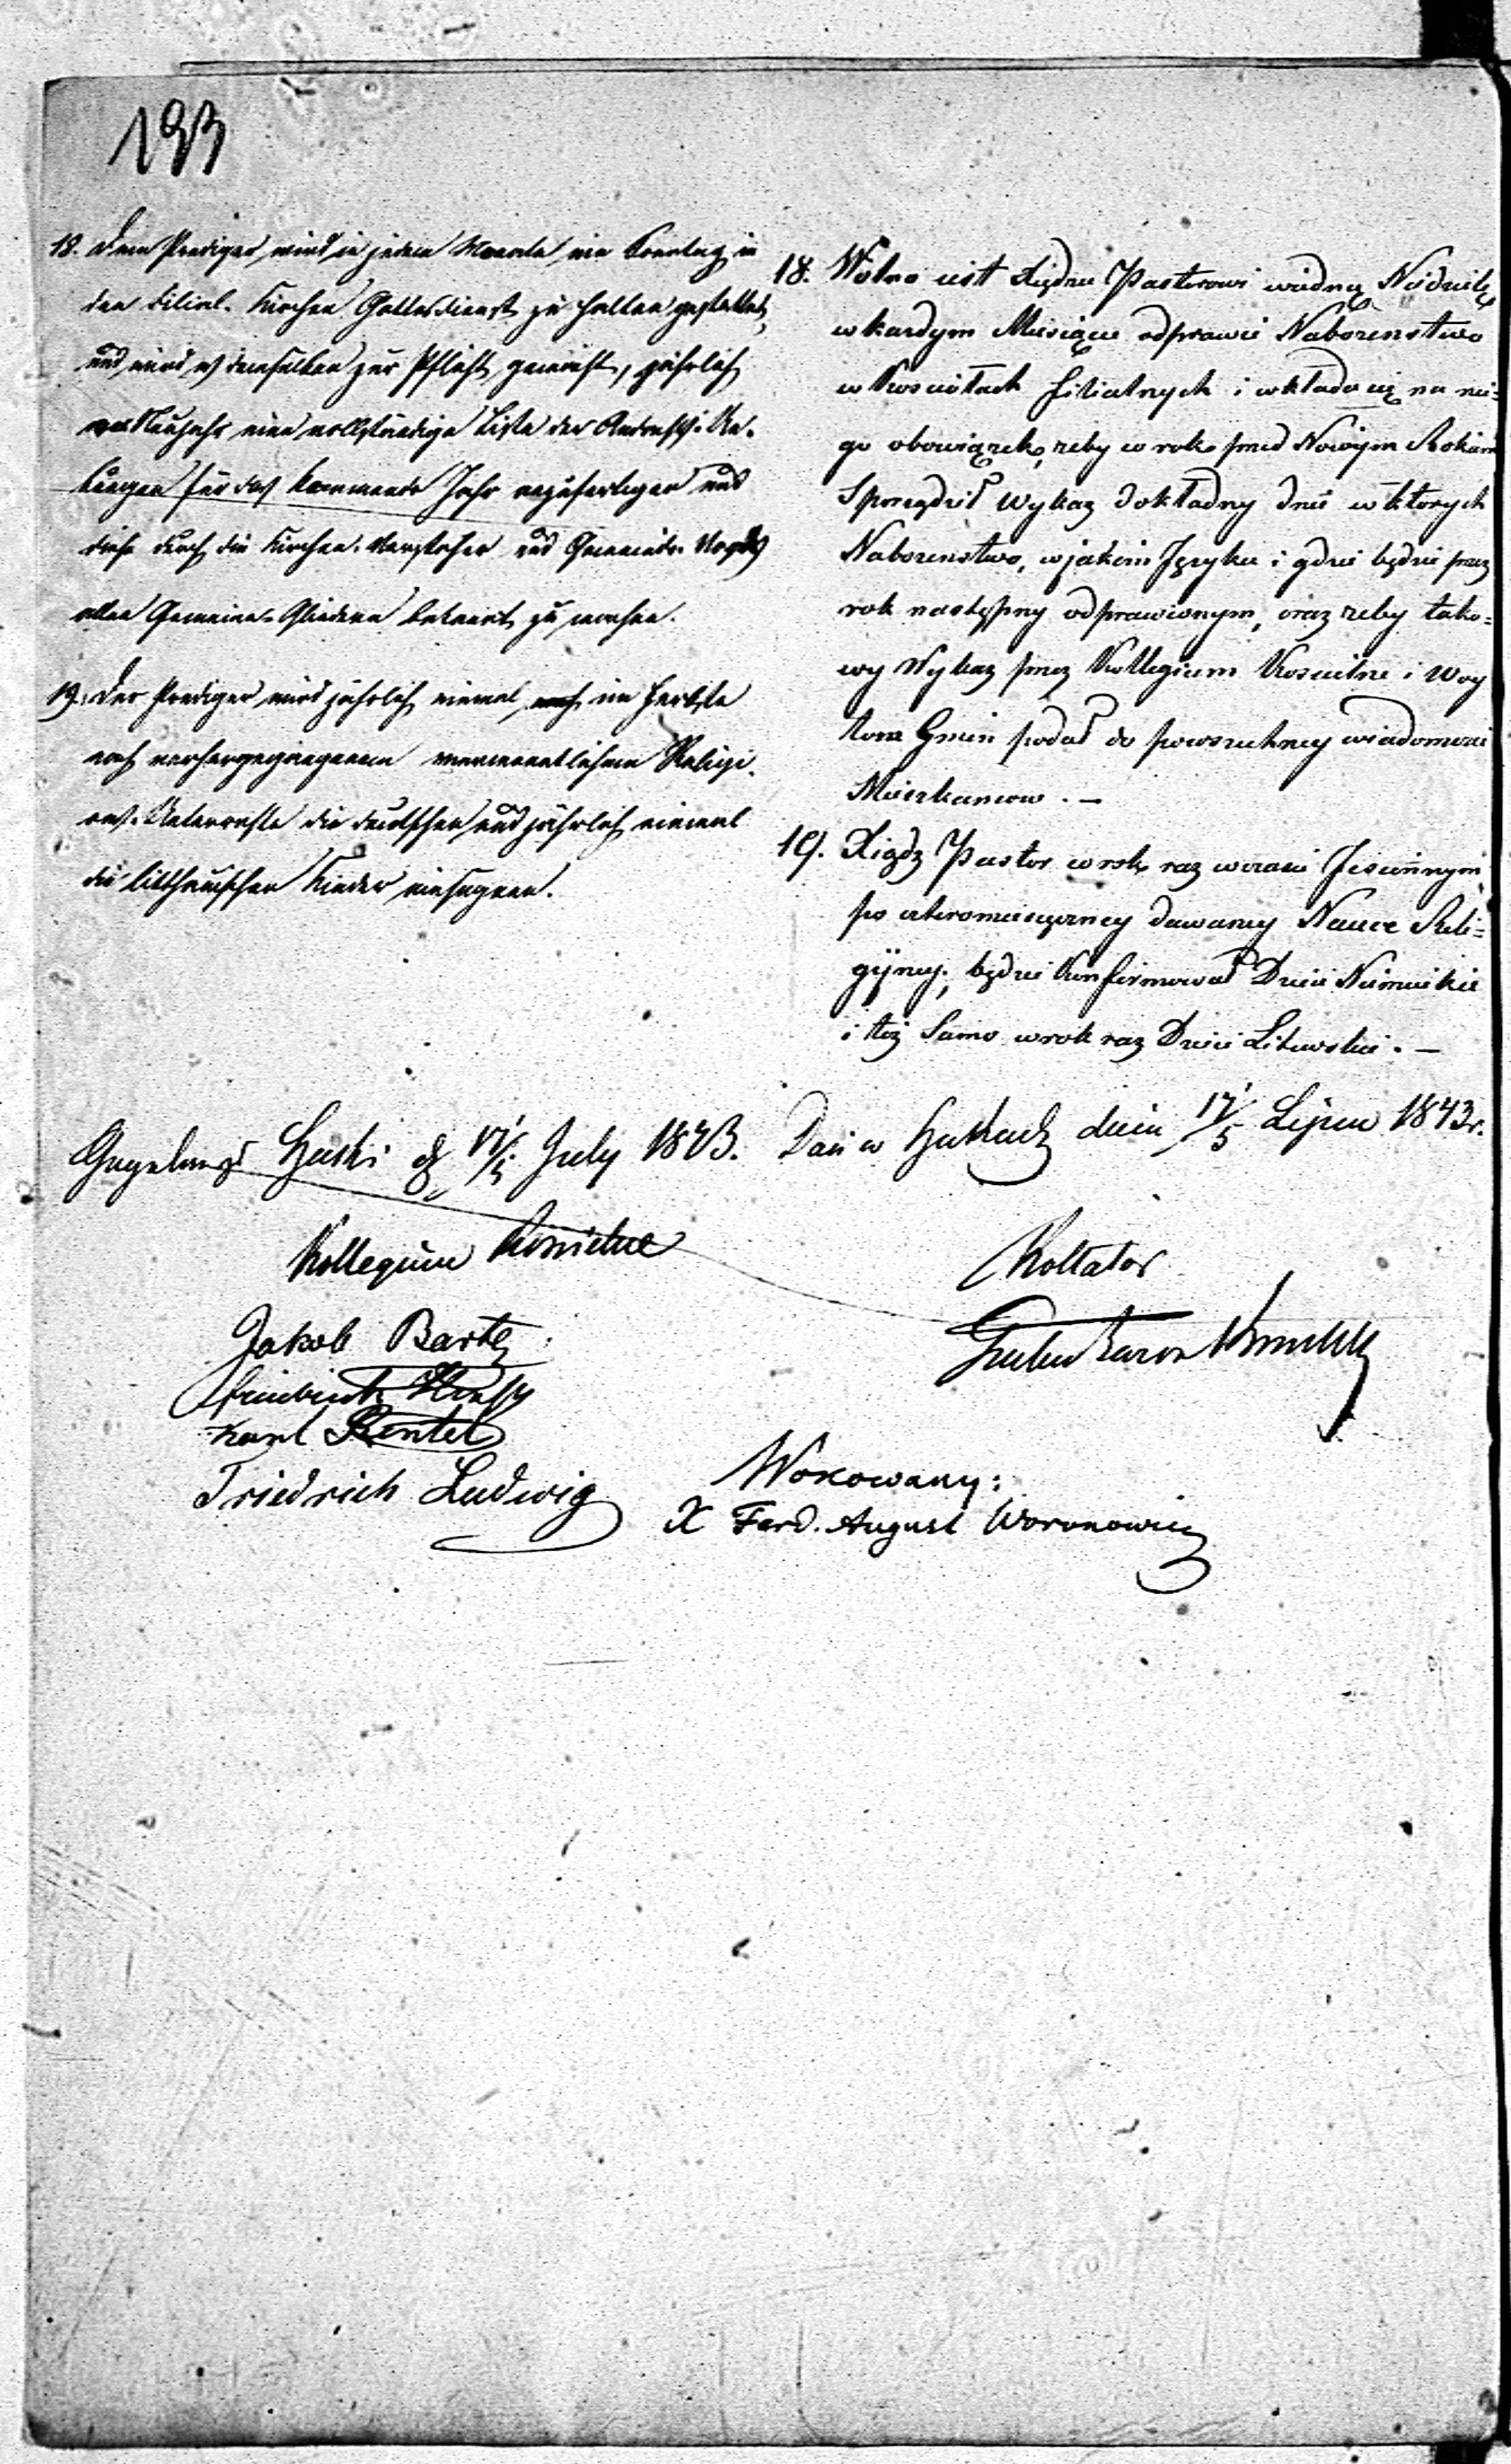 193
18. Dem Prediger wird in jedem Monate ein Sonntag in
den Filial-Kirchen Gottesdienst zu halten gestattet,
und wird es demselben zur Pflicht gemacht, jährlich
Neujahr eine vollständige Liste der Andachts-Ue-
bungen für das kommende Jahr anzufertigen und
diese durch die Kirchen-Vorsteher und Gemeinde-Vogts
allen Gemeine-Gliedern bekannt zu machen.
19. Der Prediger wird jährlich einmal im Herbste
nach vorhergegangenem Religi-
ons-Unterrichte die deutschen und jährlich einmal
die litthauischen Kinder einsegnen.
18. Wolno iest Xiędzu Pastorowi iedną Niedzielę
w kazdym Miesiącu odprawić Nabozenstwo
w Kosciołach filialnych i wkłada się na nie=
go obowiązek, zeby w rok przed Nowym Rokiem
Sporządził Wykaz dokładny dni w ktorych
Nabozenstwo, w jakim Języku i gdzie będzie przez
rok następny odprawionym, oraz zeby tako=
wy Wykaz przez Kollegium Koscielne i Woy
tow Gmin podał do powszechney wiadomosci
Mieszkancow. —
19. Xiądz Pastor w rok raz w czasie Jesiennym
po czteromiesięczney dawaney Nauce Reli=
gijney, będzie Konfirmował Dzieci Niemieckie
i też Samo w rok raz Dzieci Litewskie. —
Gegeben 17/5 July 1843.
Dan w dnia 17/5 Lipca 1843r.
Kollegium Koscielne
Kollator
Jakob Bartz
Friedrich
Karl Rentel
Friedrich Ludwig
Baron
Wokowany:
X Ferd. August Woronowicz